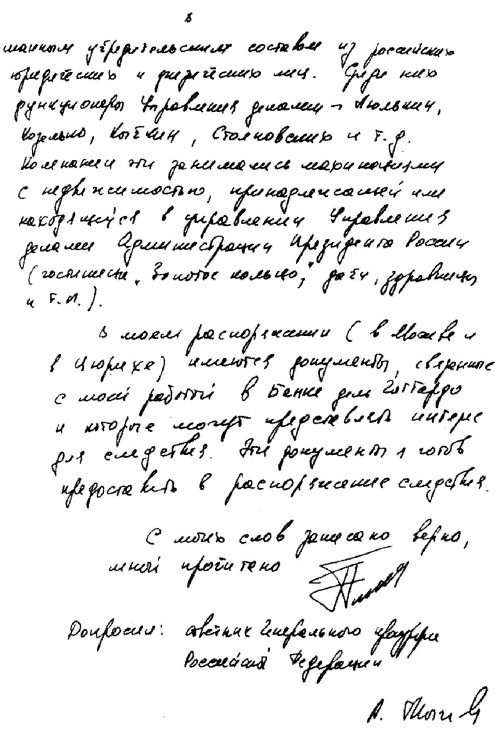 манным учредительским составом из российских
юридических и физических лиц. Среди них
функционеры Управления делами – Люлькин,
Козелько, Кыткин, Столповских и т.д.
Компании эти занимались махинациями
с недвижимостью, принадлежащей или
находящейся в управлении Управления
делами Администрации Президента России
(гостиницы "Золотое кольцо", дачи, здравницы
и т.п.).
В моем распоряжении (в Москве и
в Цюрихе) имеются документы, связанные
с моей работой в Банке дель Готтардо
и которые могут представлять интерес
для следствия. Эти документы я готов
предоставить в распоряжение следствия.
С моих слов записано верно,
мной прочитано
Допросил: советник Генерального прокурора
Российской Федерации